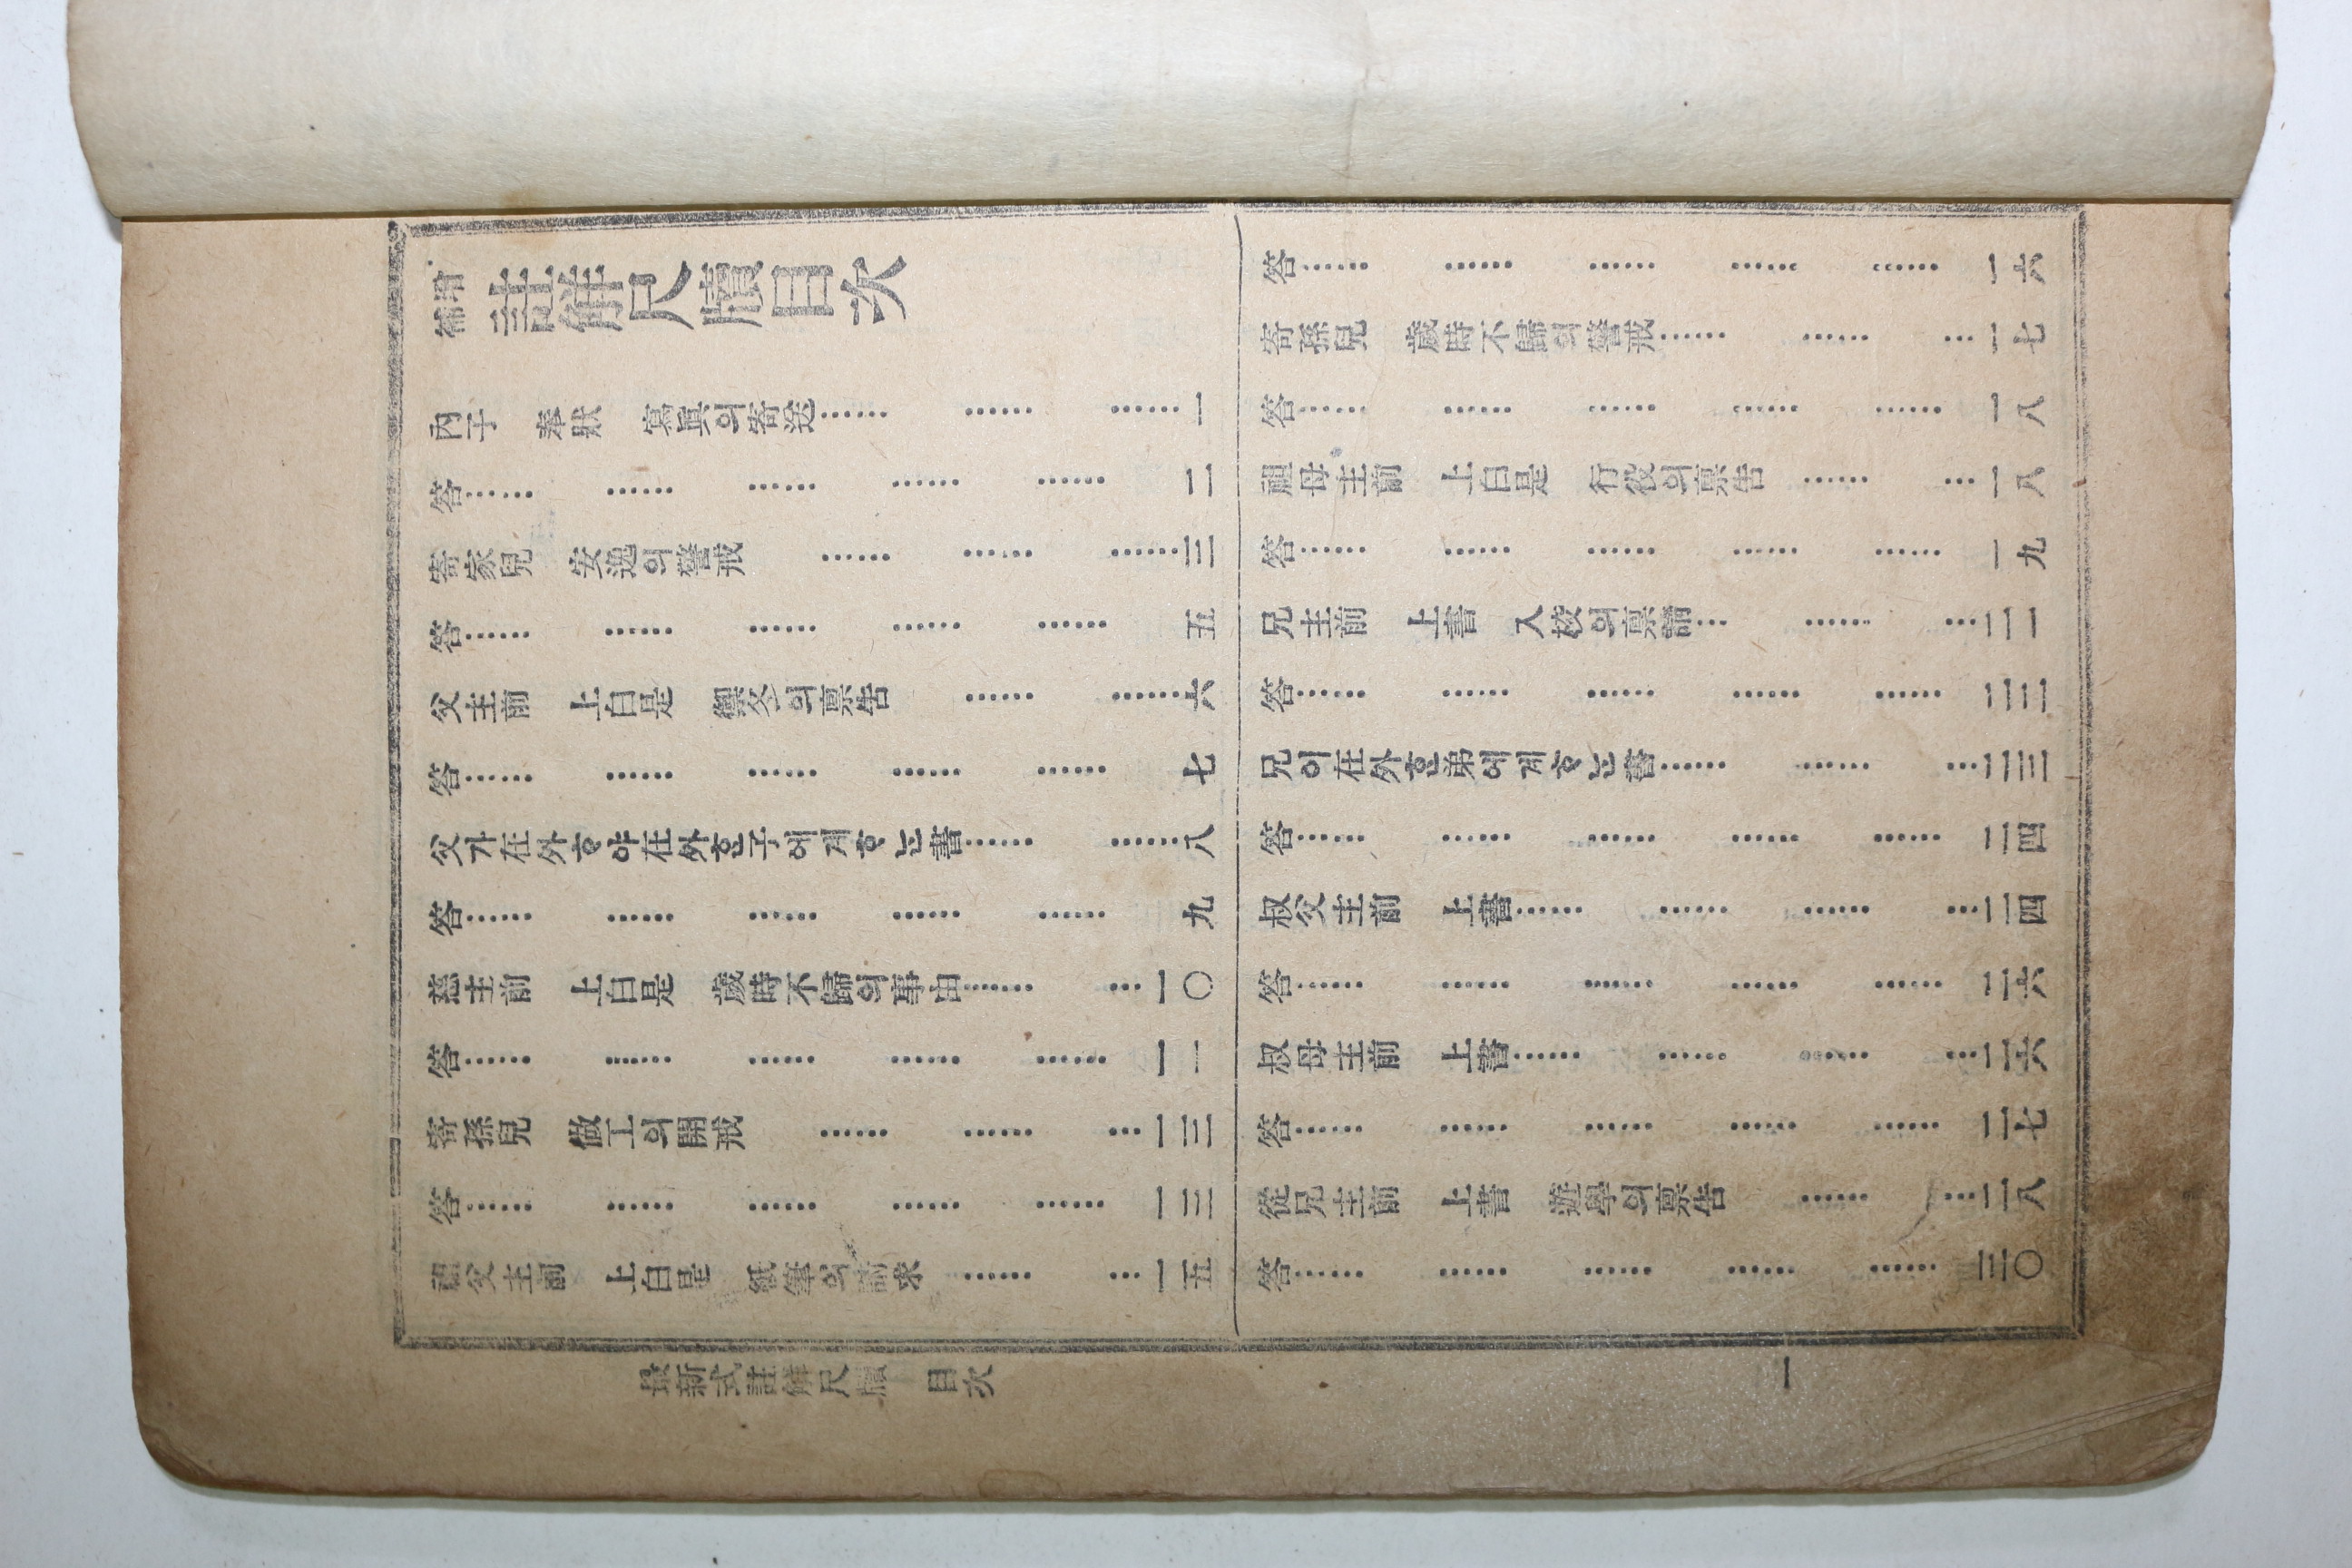 增補 註解尺牘目次
內子 奉狀 寫眞의寄送…………………一
答……………………………二
寄家兒 安逸의警戒…………………三
答……………………………五
父主前 上白是 禦冬의禀告…………六
答……………………………七
父가在外ᄒᆞ야在外ᄒᆞᆫ子에게ᄒᆞᄂᆞᆫ書…………八
答……………………………九
慈主前 上白是 歲時不歸의事由………一〇
答……………………………一一
寄孫兒 做工의開戒……………一三
答……………………………一三
祖父主前 上白是 紙筆의請求………一五
答……………………………一六
寄孫兒 歲時不歸의警戒……………一七
答……………………………一八
祖母主前 上白是 行役의禀告………一八
答……………………………一九
兄主前 上書 入校의禀請……………二一
答……………………………二二
兄이在外ᄒᆞᆫ弟에게ᄒᆞᄂᆞᆫ書……………二三
答……………………………二四
叔父主前 上書…………………二四
答……………………………二六
叔母主前 上書…………………二六
答……………………………二七
從兄主前 上書 遊學의禀告…………二八
答……………………………三〇
最新式註解尺牘 目次
一